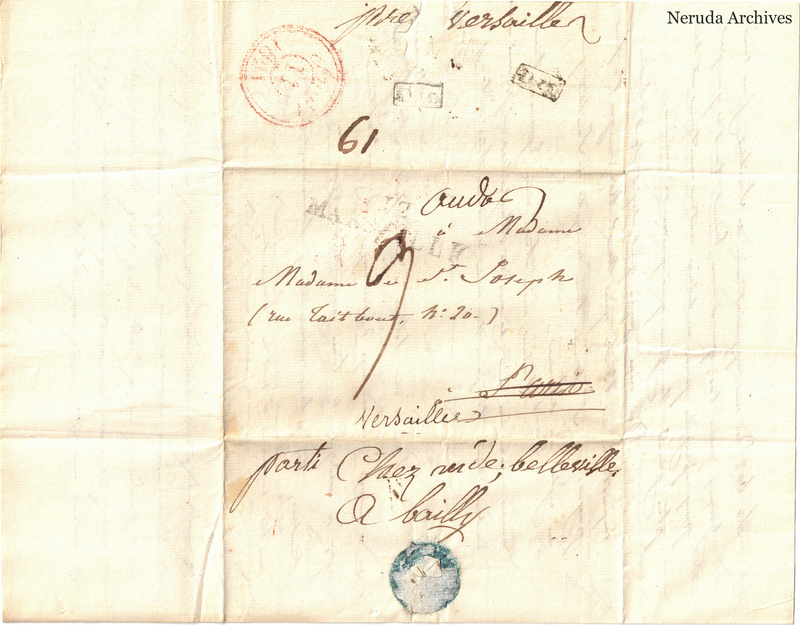 Neruda Archives
près Versailles
61
à Madame
Madame de St. Joseph
(rue Taitbout, No. 20.)
à Paris.
Versailles
parti Chez mde. belleville,
A bailly